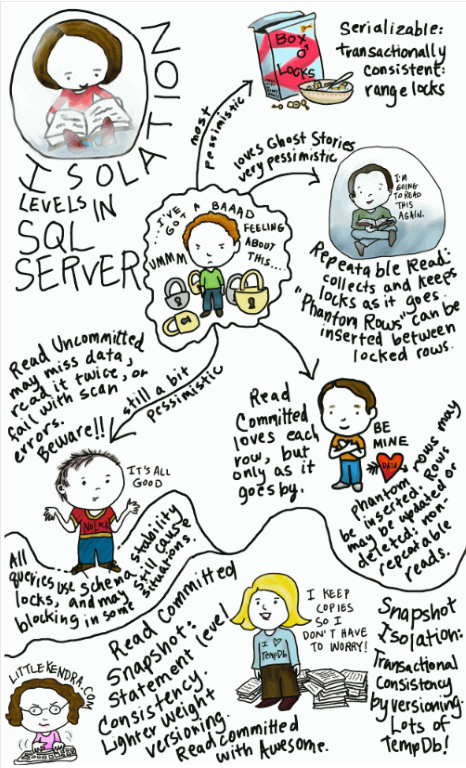 ISOLATION
LEVELS IN
SQL
SERVER
most
pessimistic
BOX
O'
LOCKS
Serializable:
transactionally
consistent:
range locks
loves Ghost Stories
very pessimistic
I'M
GOING
TO READ
THIS
AGAIN.
Repeatable Read:
collects and keeps
locks as it goes.
"Phantom Rows" can be
inserted between
locked rows.
UMMM...I'VE
GOT A BAAAD
FEELING
ABOUT
THIS....
Read Uncommitted
may miss data,
read it twice, or
fail with scan
errors.
Beware!!
still a bit
pessimistic
IT'S ALL
GOOD
NoLock
All
queries use schema stability
locks, and may still cause
blocking in some situations.
Read
Committed
loves each
row, but
only as it
goes by.
BE
MINE
DATA
phantom rows may
be inserted. Rows
may be updated or
deleted: non-
repeatable
reads.
LITTLEKENDRA.COM
Read Committed
Snapshot:
Statement level
Consistency.
Lighter weight
versioning.
Read committed
with Awesome.
I KEEP
COPIES
SO I
DON'T HAVE
TO WORRY!
I ♡
TempDb
Snapshot
Isolation:
Transactional
Consistency
by versioning.
Lots of
TempDb!